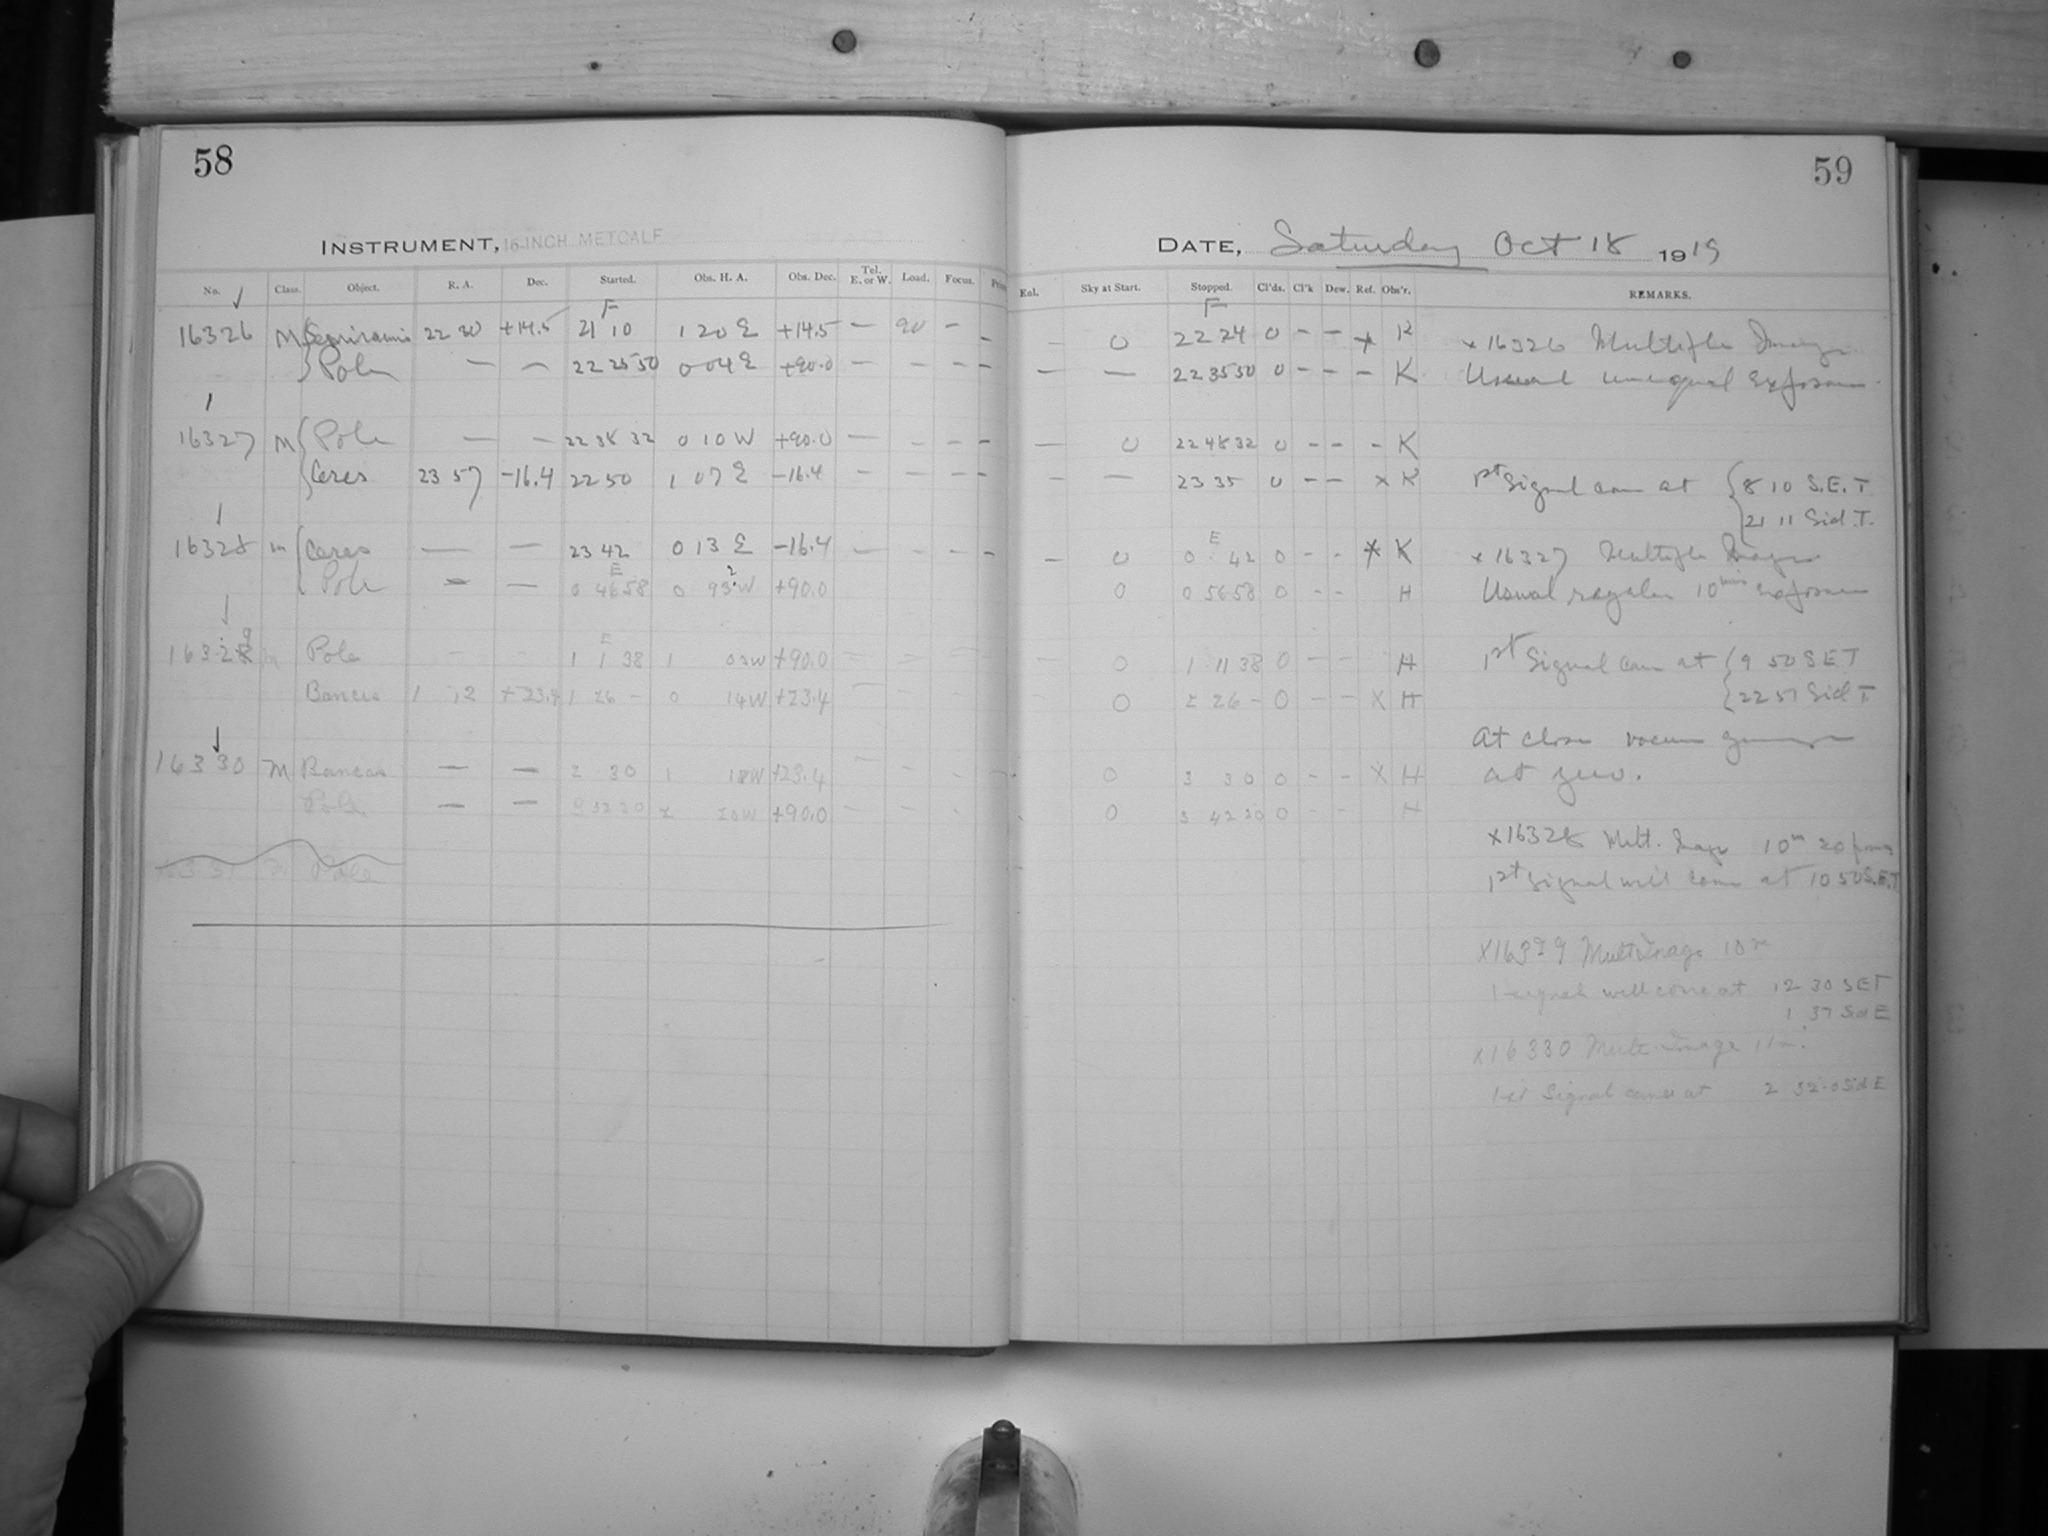 58
59
INSTRUMENT, 16-INCH METCALF
DATE, Saturday Oct 18 1919
No. Class. Object. R. A. Dec. Started. Obs. H. A. Obs. Dec. Tel. E. or W. Load. Focus. Eql. Sky at Start. Stopped. Cl'ds. Cl'k Dew. Ref. Obs'r. REMARKS.
F F
16326 M Semiramis 22 30 +14.5 21 10 1 20 E +14.5 — 90 – – – 0 22 24 0 – – x K x 16326 Multiple Image
Pole — — 22 25 50 0 04 E +90.0 – – – – — — 22 35 50 0 – – – K Usual unequal exposures
16327 M Pole — — 22 38 32 0 10 W +90.0 — – – – — 0 22 48 32 0 – – – K
Ceres 23 57 -16.4 22 50 1 07 E -16.4 – – – – – — 23 35 0 – – x K 1st Signal came at 8 10 S.E.T
21 11 Sid. T.
E
16328 m Ceres — — 23 42 0 13 E -16.4 — – – – – 0 0 42 0 – – x K x 16327 Multiple Image
E
Pole — — 0 46 58 0 W +90.0 0 0 56 58 0 – – H Usual regular 10 mins exposures
16329 m Pole – – 1 1 38 1 02 W +90.0 – – – – 0 1 11 38 0 – – H 1st Signal came at 9 50 S E T
1 12 +23.4 1 26 – 0 14 W +23.4 – 0 2 26 – 0 – – x H 22 51 Sid T.
At close vacuum
16330 M — — 2 30 1 18 W +23.4 – – – – 0 3 30 0 – – x H at zero.
Pole — — 20 W +90.0 – – – 0 3 42 20 0 – – H
x16328 Mult. Image 10m
Pole 1st signal will come at 10 50 S.E.T
x16329 Mult Image 10m
1 signal will come at 12 30 SET
1 37 Sid E
x16330 Mult. Image 11m.
1st Signal came at 2 32.0 Sid E